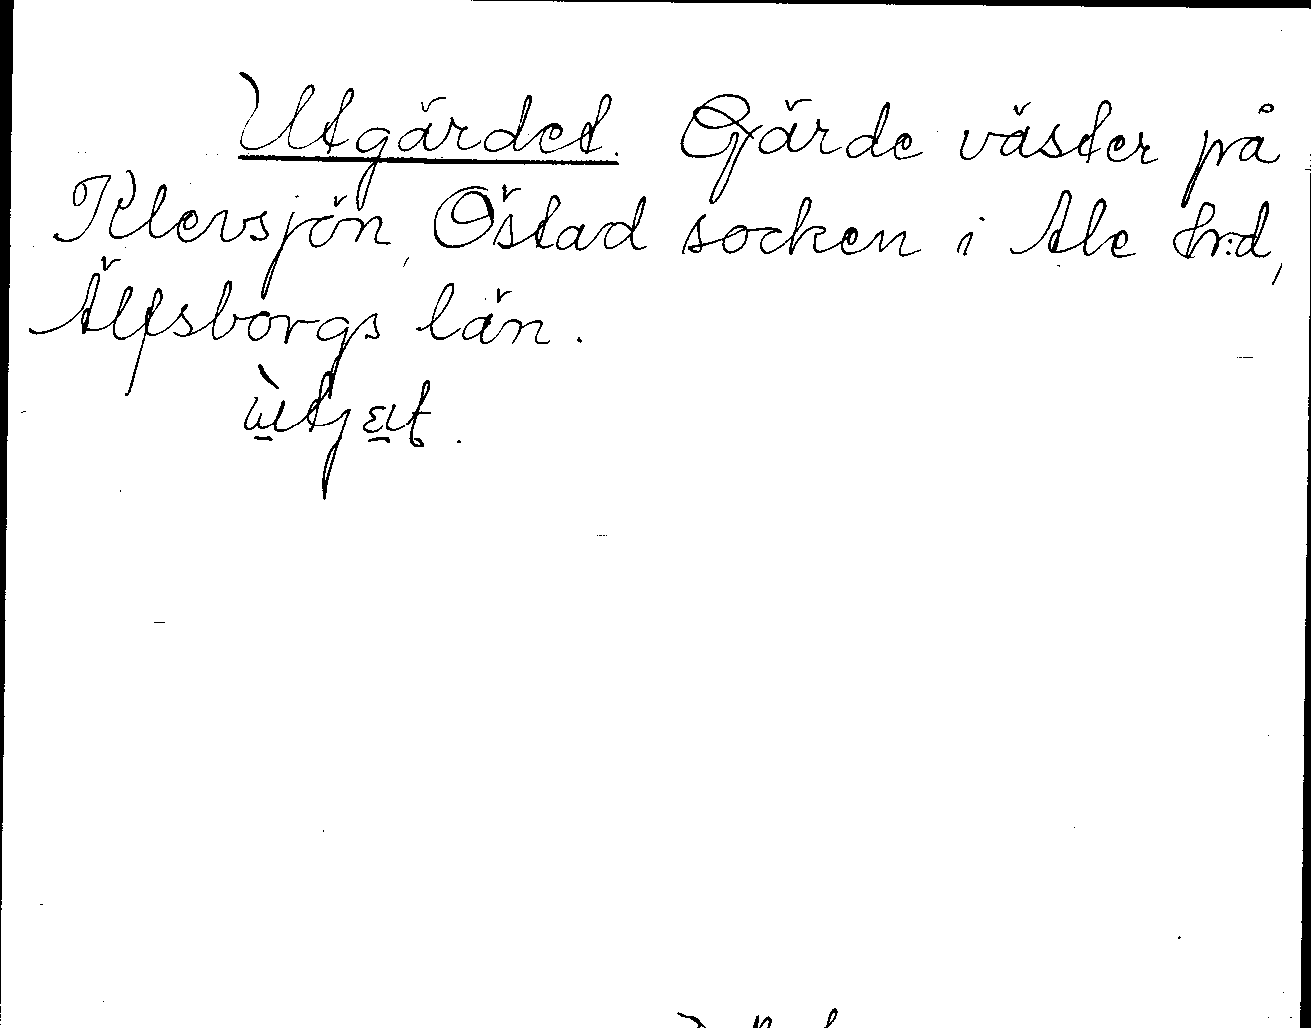 Utgärdet. Gärde väster på
Klevsjön, Östad socken i Ale hr:d,
Älfsborgs län.